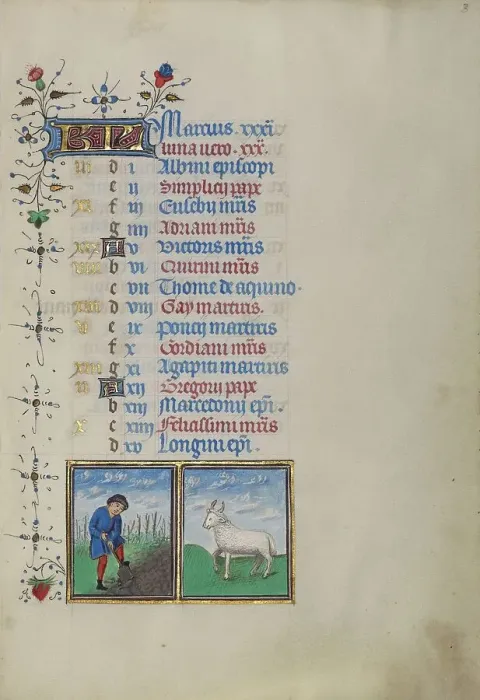 KL Marcius . xxxi
luna vero . xxx.
iii d i Albini episcopi
e ii Simplicij pape
xi f iii Eusebij mris
g iiii Adriani mris
A v Victoris mris
b vi Quirini mris
c vii Thome de aquino .
d viii Gay martiris .
v e ix Poncij martiris
f x Gordiani mris
xiii g xi Agapiti martiris
ii A xii Gregorii pape
b xiii Marcedonij epi .
x c xiiii Felicissimi mris
d xv Longini epi .